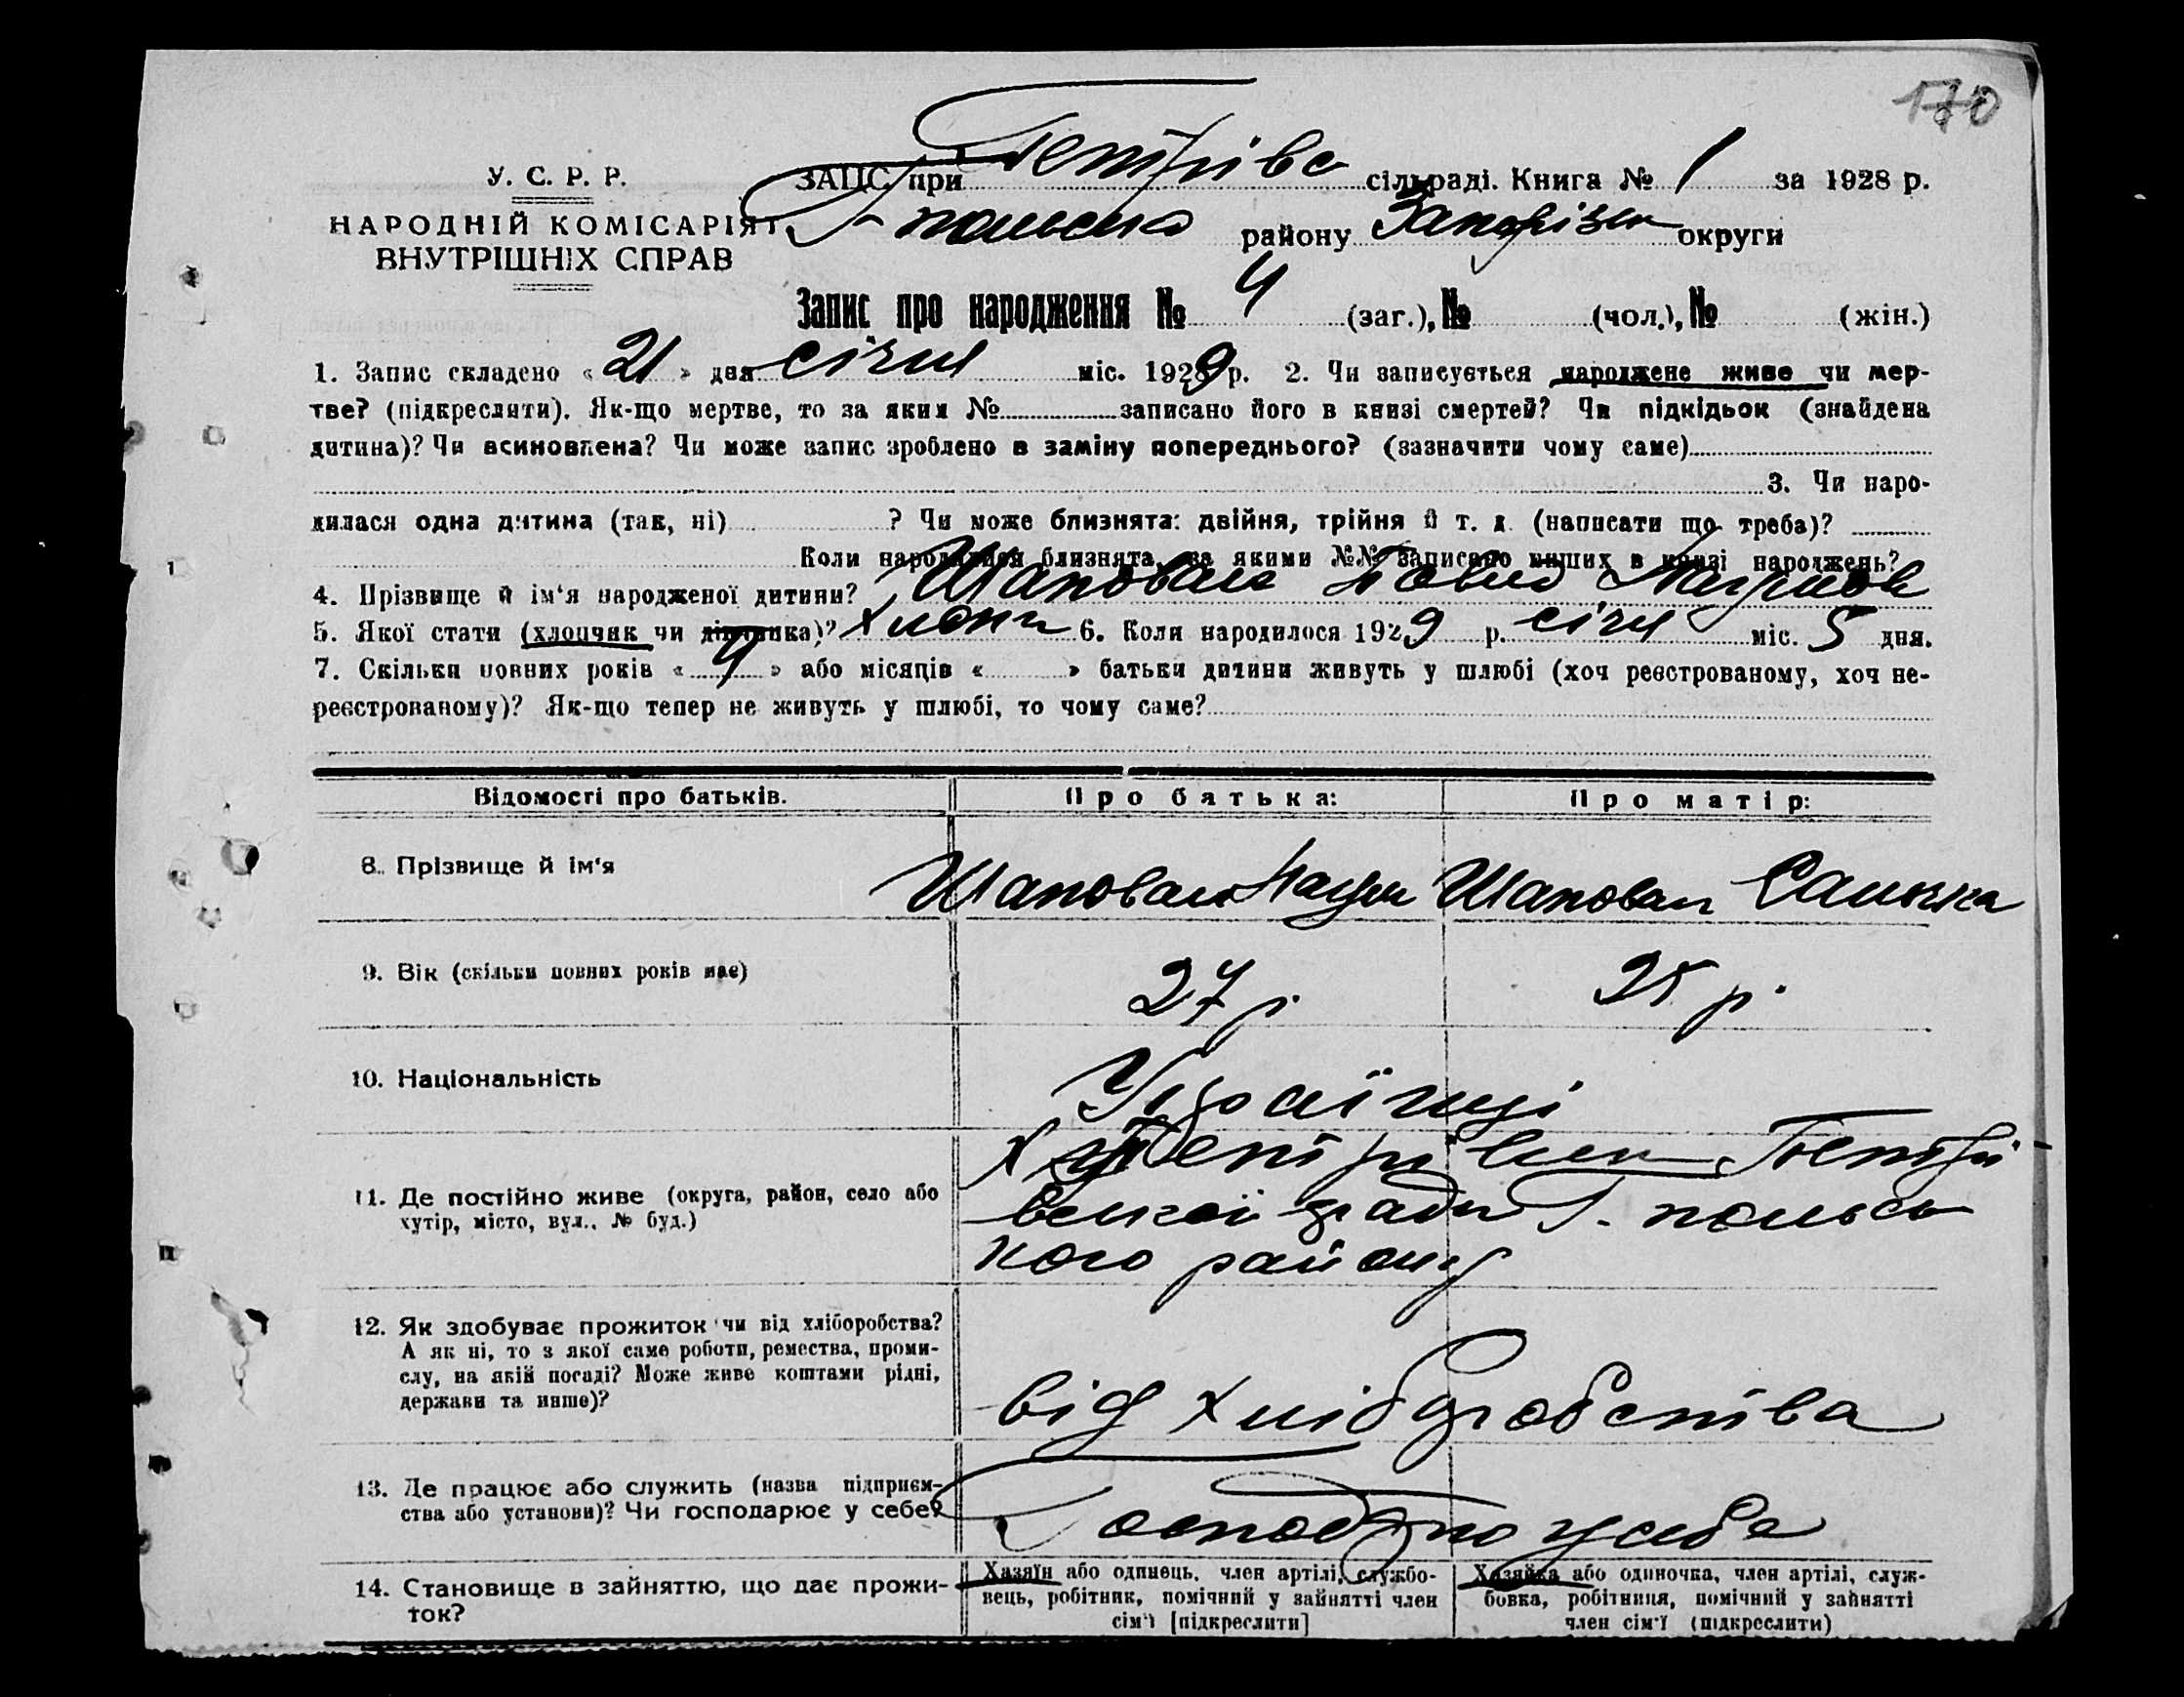 170
У. С. Р. Р.
НАРОДНІЙ КОМІСАРІЯТ
ВНУТРІШНІХ СПРАВ
ЗАПС при Петрівс сільраді. Книга № 1 за 1928 р.
Г-польсько району Запорізьк округи
Запис про народження № 4 (заг.), № (чол.), № (жін.)
1. Запис складено « 21 » дня січня міс. 1929 р. 2. Чи записується народжене живе чи мер-
тве? (підкреслити). Як-що мертве, то за яким № записано його в книзі смертей? Чи підкідьок (знайдена
дитина)? Чи всиновлена? Чи може запис зроблено в заміну попереднього? (зазначити чому саме)
3. Чи наро-
дилася одна дитина (так, ні) ? Чи може близнята: двійня, трійня й т. д. (написати що треба)?
Коли народилися близнята, за якими №№ записано инших в книзі народжень?
4. Прізвище й ім‘я народженої дитини? Шаповал
5. Якої стати (хлопчик чи дівчинка)? хлопч 6. Коли народилося 1929 р. січня міс. 5 дня.
7. Скільки повних років « 4 » або місяців « » батьки дитини живуть у шлюбі (хоч реєстрованому, хоч не-
реєстрованому)? Як-що тепер не живуть у шлюбі, то чому саме?
Відомості про батьків. Про батька: Про матір:
8. Прізвище й ім‘я Шаповал Наум Шаповал
9. Вік (скільки повних років має) 27 р. 25 р.
10. Національність Українці
11. Де постійно живе (округа, район, село або
хутір, місто, вул., № буд.)
Петрі
вської ради Г. польсь
кого району
12. Як здобуває прожиток чи від хліборобства?
А як ні, то з якої саме роботи, ремества, проми-
слу, на якій посаді? Може живе коштами рідні,
держави та инше)?
від хліборобства
13. Де працює або служить (назва підприєм-
ства або установи)? Чи господарює у себе?
у себе
14. Становище в зайняттю, що дає прожи-
ток?
Хазяїн або одинець, член артілі, службо-
вець, робітник, помічний у зайнятті член
сім‘ї [підкреслити]
Хазяйка або одиночка, член артілі, служ-
бовка, робітниця, помічний у зайнятті
член сім‘ї (підкреслити)